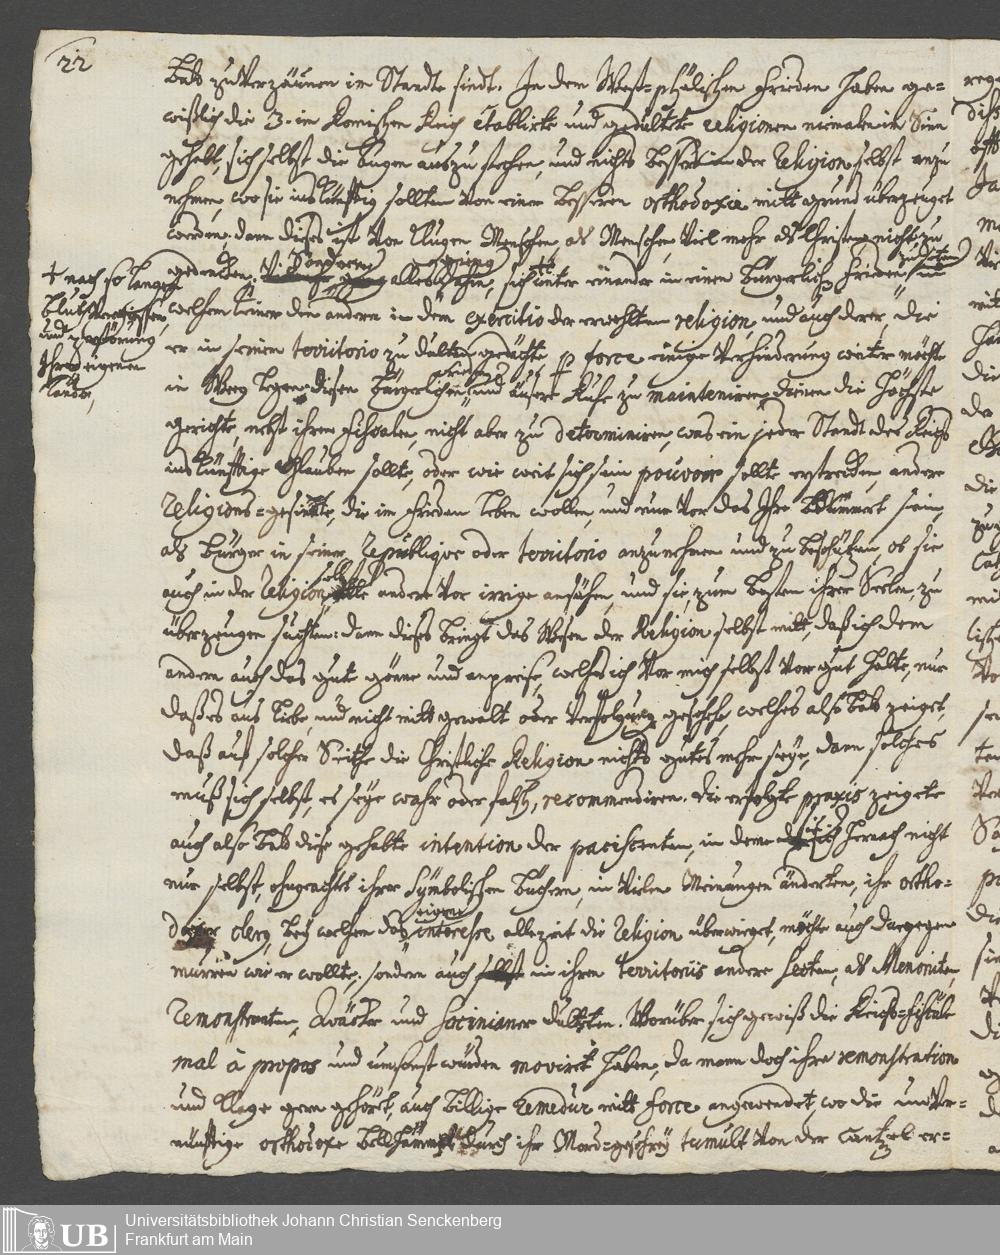 22
bald zu verzäunen im Stande sindt. In dem West-phälischen Frieden haben ge=
wißlich die 3. im Römischen Reich etablirte und gedultete religionen niemalen im Sinn
gehabt, sich selbst die Augen auszustechen, und nichts besseres in der Religion selbst anzu
nehmen, wo sie ins künfftig sollten von einer besseren orthodoxie mitt grund überzeuget
werden; dann dieses ist von klugen Menschen, als Menschen, viel mehr als Christen nicht zu
gedencken. Sondern alles dahin, sich unter einander in einen bürgerlich Frieden
† nach so langem
blutvergiessen,
und zerstörung
Ihrer eigenen
Länder,
welchem keiner den andern in dem exercitio der erwehlten religion, und auch derer, die
er in seinem territorio zu dulten gedächte p force einige Verhinderung weiter möchte
in Weeg legen. diesen bürgerlichen frieden und äusere Ruhe zu mainteniren dienen die höchste
gerichte, nebst ihren fiscalen, nicht aber zu determiniren, was ein jeder Standt des Reichs
ins künfftige glauben sollte, oder wie weit sich sein pouvoir sollte erstrecken, andere
Religions=gesinnte, die im Frieden leben wollen, und nur vor das Ihre bekümmert sein,
als bürger in seiner Republique oder territorio anzunehmen und zu beschützen, ob sie
auch in der Religion selbst andere vor irrige ansähen, und sie, zum besten ihrer Seelen, zu
überzeugen suchten: dann dieses bringt das Wesen der Religion selbst mitt, daß ich dem
andern auch das gute gönne und anpreise, welches ich vor mich selbst vor gut halte, nur
daß es aus liebe, und nicht mitt gewalt oder verfolgung geschehe, welches also bald zeiget,
daß auf solcher Seithe die Christliche Religion nichts gutes mehr seye, dann solches
muß sich selbst, es seye wahr oder falsch, recommendiren. Die erfolgte praxis zeigete
auch also bald diese gehabte intention der paciscenten, in deme sie sich hernach nicht
nur selbst, ohngeachtet ihrer Symbolischen büchern, in vielen Meinungen änderten, ihr ortho=
doxer clerg, bey welchem das eigene interesse allezeit die Religion überwieget, möchte auch dargegen
murren wie er wollte; sondern auch in ihren territoriis andere Secten, als Menoniten,
Remonstranten, Quäcker und Socinianer dulteten. Worüber sich gewiß die Reichs=fiscäle
mal à propos und umsonst würden movirt haben, da mann doch ihre remonstration
und klage gern gehört, auch billige remedur mitt force angewendet, wo die unver=
nünfftige orthodoxe bellhämmel durch ihr Mord=geschrey tumult von der Cantzel er=
Universitätsbibliothek Johann Christian Senckenberg
Frankfurt am Main
UB